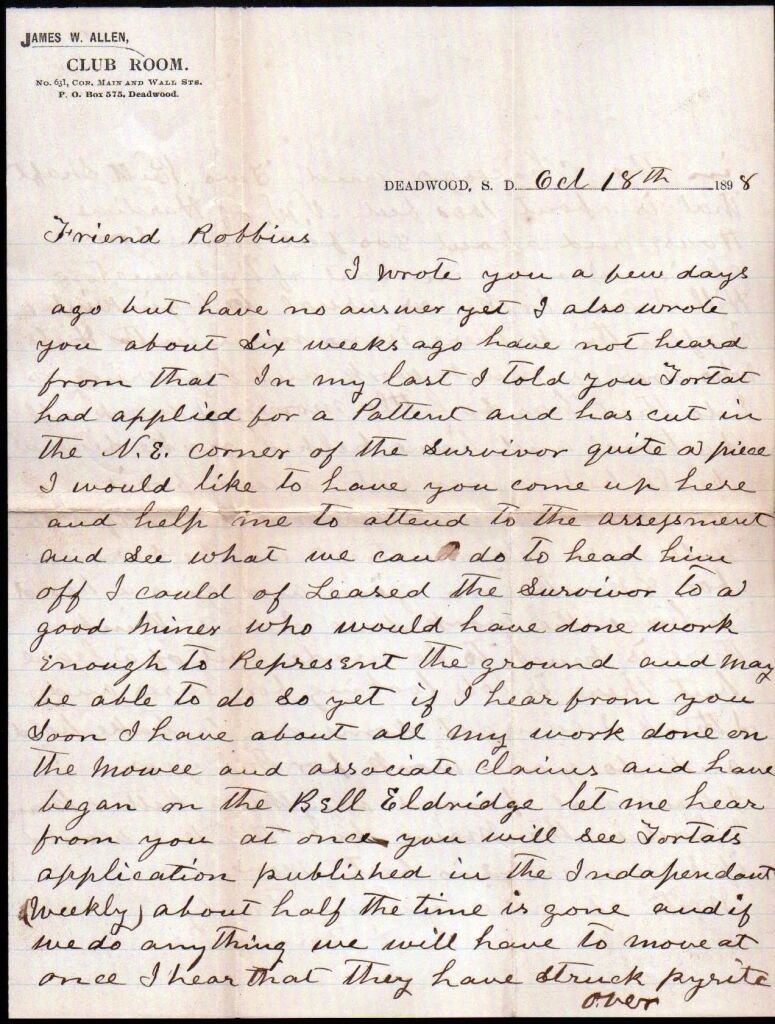 JAMES W. ALLEN,
CLUB ROOM.
No. 631, Cor. Main and Wall Sts.
P. O. Box 575, Deadwood.
DEADWOOD, S. D. Oct 18th 1898
Friend Robbins
I wrote you a few days
ago but have no answer yet I also wrote
you about Six weeks ago have not heard
from that In my last I told you Tortat
had applied for a Pattent and has cut in
the N.E. corner of the Survivor quite a piece
I would like to have you come up here
and help me to attend to the assessment
and See what we can do to head him
off I could of Leased the Survivor to a
good Miner who would have done work
Enough to Represent the ground and may
be able to do So yet if I hear from you
Soon I have about all my work done on
The Mowee and associate Claims and have
began on the Bell Eldridge let me hear
from you at once you will See Tortats
application published in the Independant
(Weekly) about half the time is gone and if
we do anything we will have to move at
once I hear that they have Struck pyrite
over